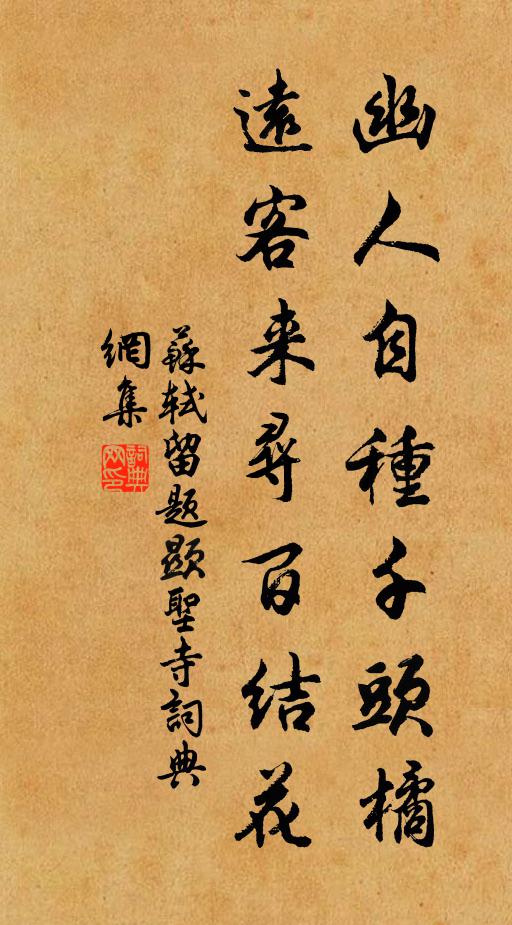 幽人自種千頭橘
遠客来尋百結花
蘇軾留题顯聖寺詞典
網集
詞典
网印